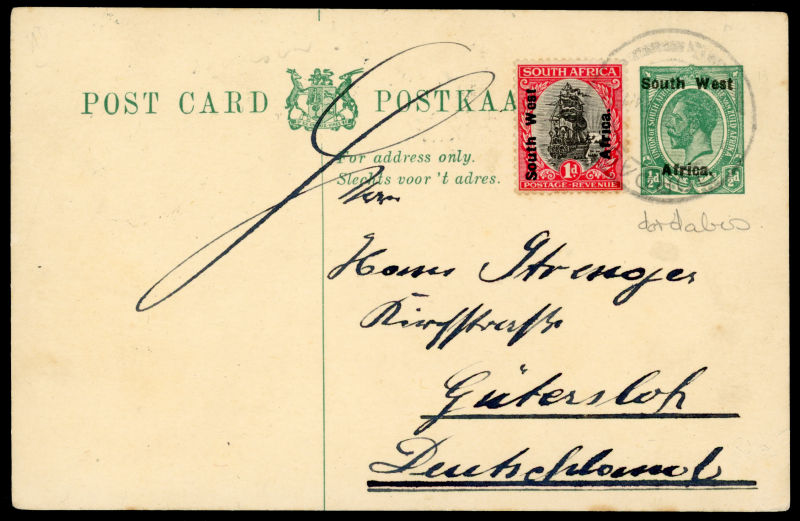 POST CARD POSTKAA
For address only.
Slechts voor 't adres.
SOUTH AFRICA
South West
Africa.
1d
POSTAGE-REVENUE
South West
Africa.
½d ½d
dordabis
Herrn
Hans Strenger
Kirchstraße
Gütersloh
Deutschland